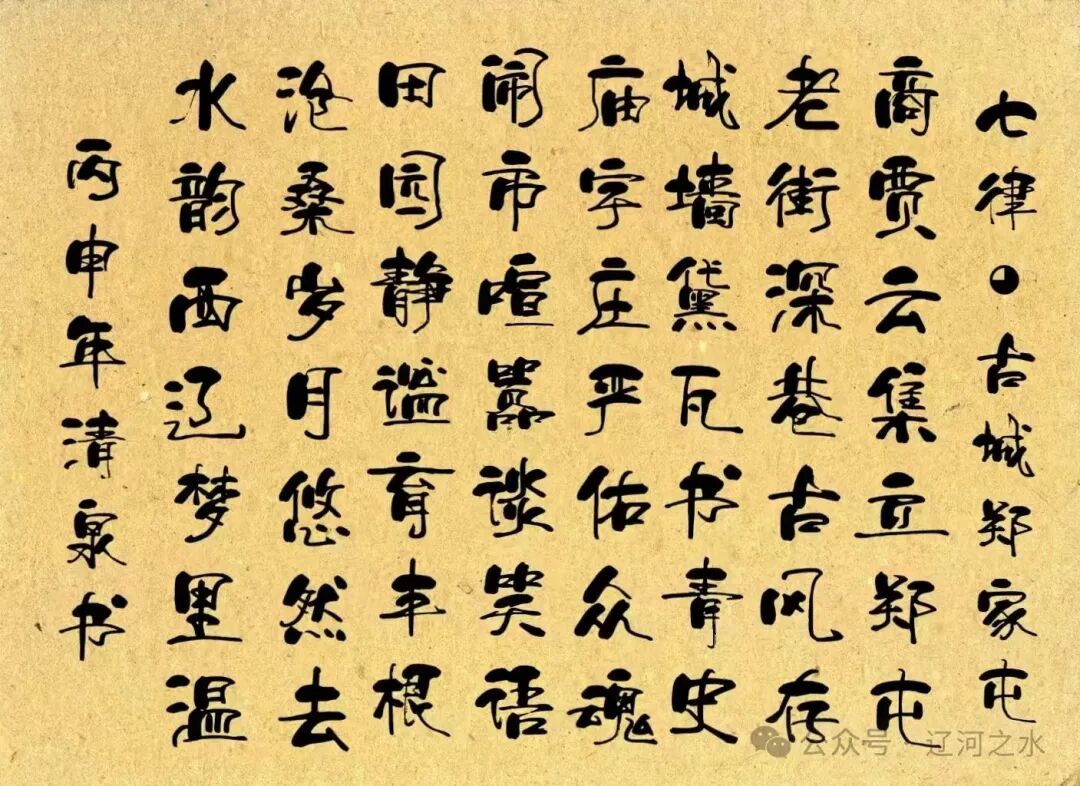 七律·古城郑家屯
商贾云集立郑屯
老街深巷古风存
城墙黛瓦书青史
庙宇庄严佑众魂
闹市喧嚣谈笑语
田园静谧育丰根
沧桑岁月悠然去
水韵西辽梦里温
丙申年清泉书
公众号·辽河之水